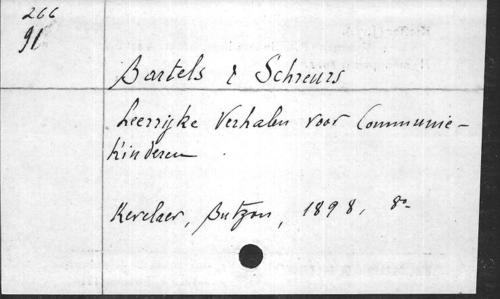 266
91
Bartels & Schreurs
Leerrijke Verhalen voor Communie-
kinderen.
Kevelaer, Butzon, 1898, 8o